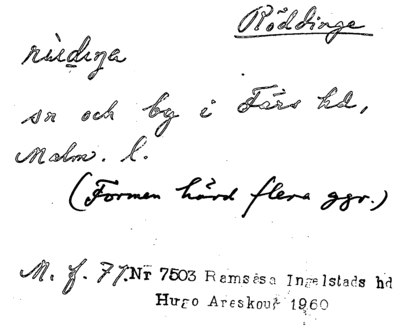 Röddinge
sn och by i Färs hd,
Malm. l.
(Formen hörd flera ggr.)
M. f. 77. Nr 7503 Ramsåsa Ingelstads hd
Hugo Areskoug 1960